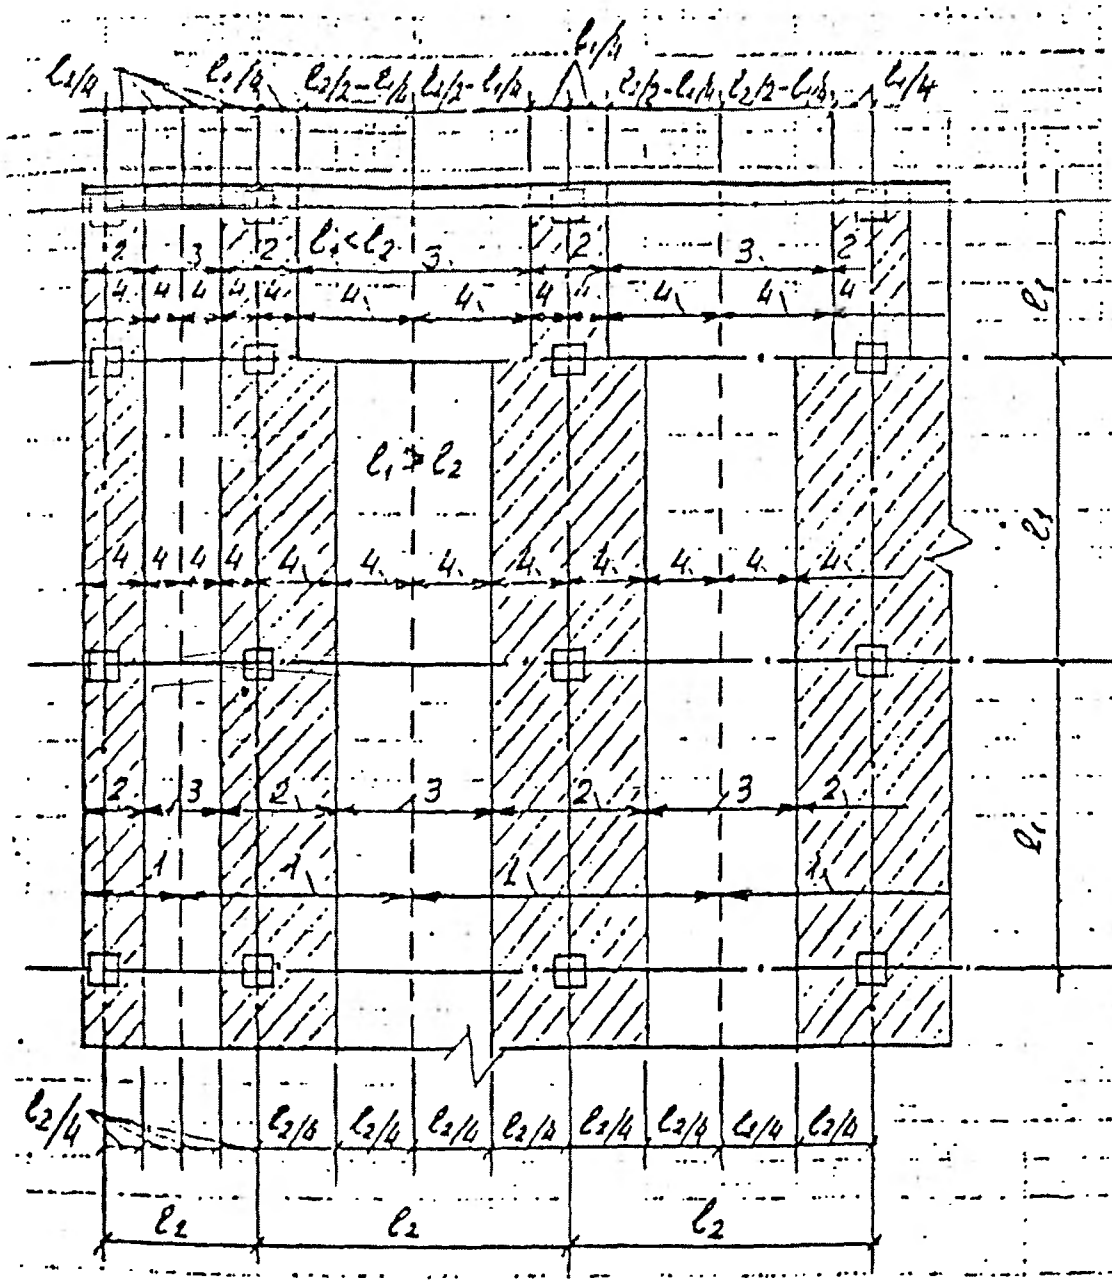 l₂/4 l₁/4 l₂/2-l₁/4 l₂/2-l₁/4 l₁/4 l₂/2-l₁/4 l₂/2-l₁/4 l₁/4
2 3 2 l₁<l₂ 3 2 3 2
4 4 4 4 4 4 4 4 4 4 4 4
l₁
l₁>l₂
l₁
4 4 4 4 4 4 4 4 4 4 4 4
2 3 2 3 2 3 2
l₁
1 1 1 1
l₂/4 l₂/4 l₂/4 l₂/4 l₂/4 l₂/4 l₂/4 l₂/4 l₂/4
l₂ l₂ l₂